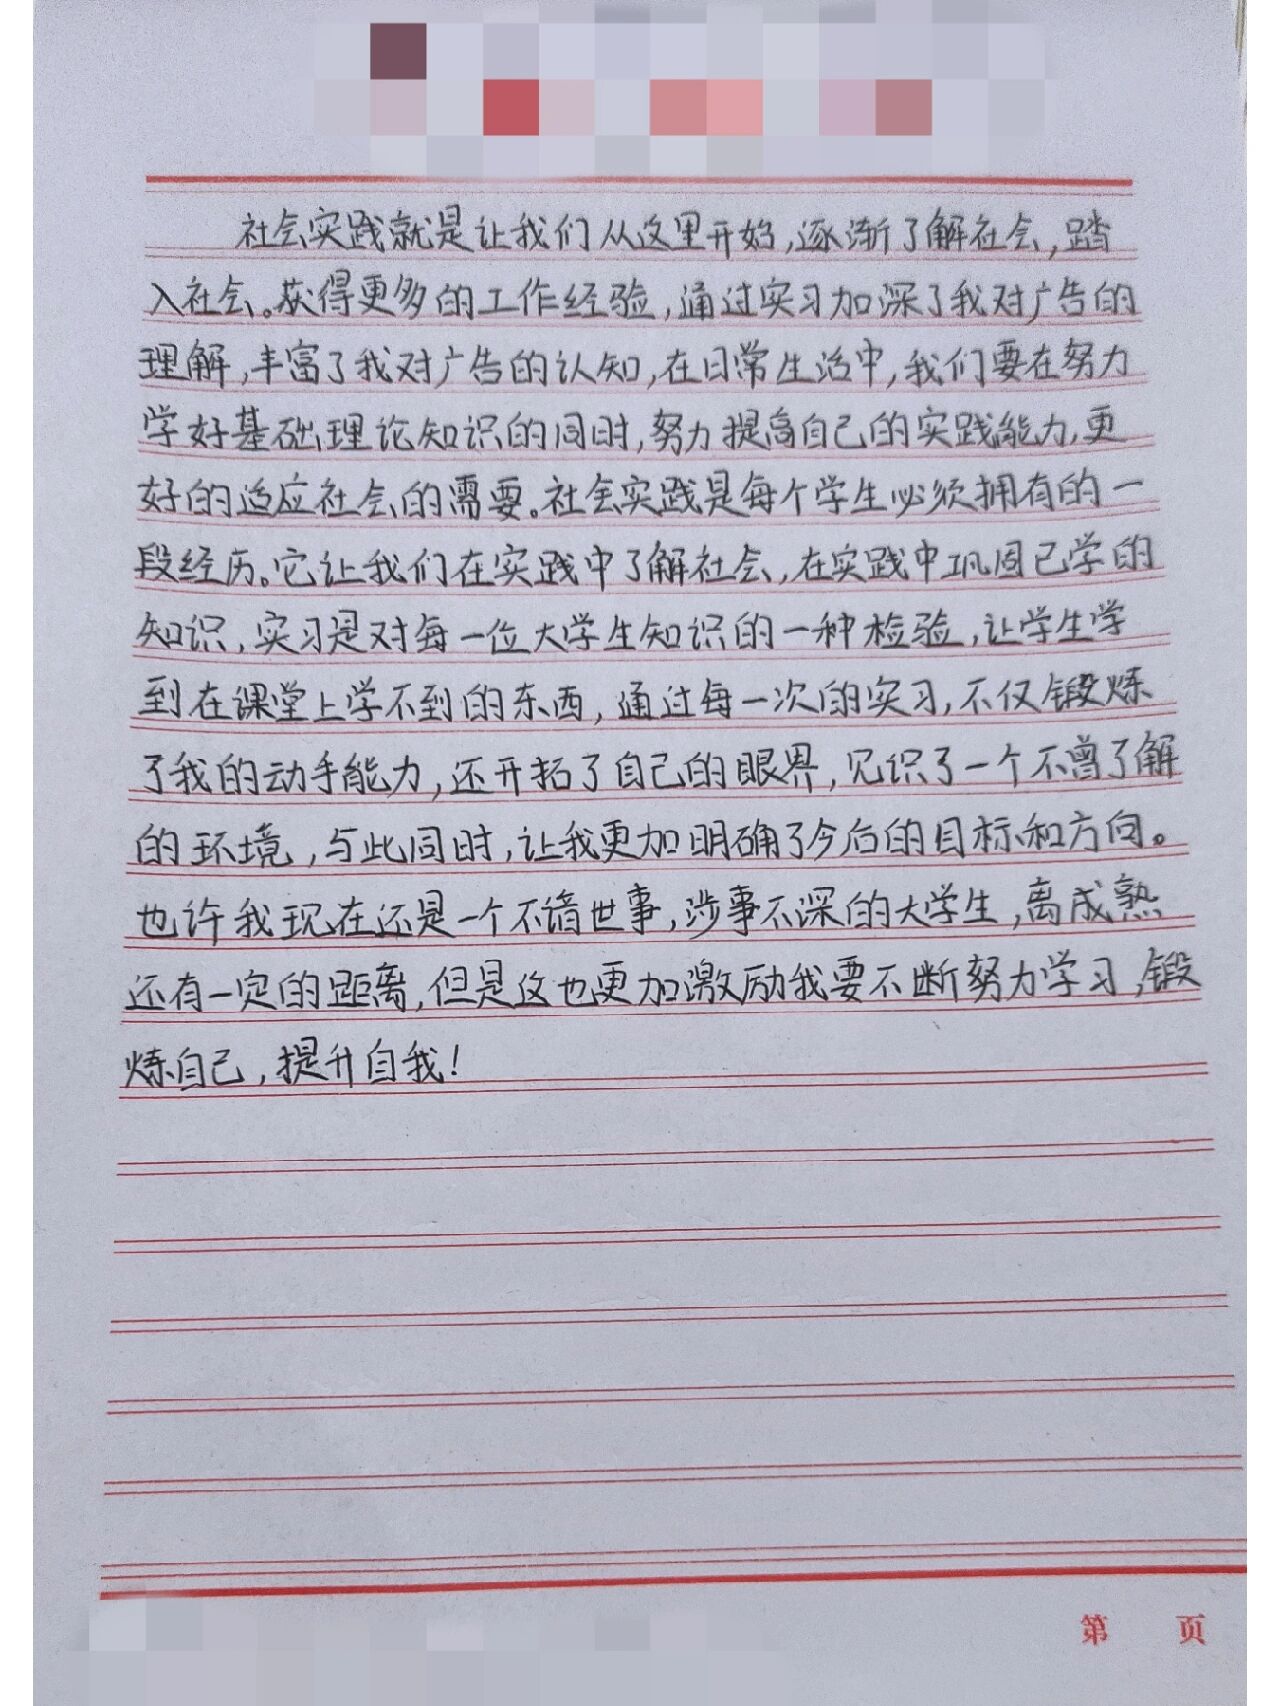 社会实践就是让我们从这里开始,逐渐了解社会,踏
入社会。获得更多的工作经验,通过实习加深了我对广告的
理解,丰富了我对广告的认知,在日常生活中,我们要在努力
学好基础理论知识的同时,努力提高自己的实践能力,更
好的适应社会的需要。社会实践是每个学生必须拥有的一
段经历。它让我们在实践中了解社会,在实践中巩固已学的
知识,实习是对每一位大学生知识的一种检验,让学生学
到在课堂上学不到的东西,通过每一次的实习,不仅锻炼
了我的动手能力,还开拓了自己的眼界,见识了一个不曾了解
的环境,与此同时,让我更加明确了今后的目标和方向。
也许我现在还是一个不谙世事,涉事不深的大学生,离成熟
还有一定的距离,但是这也更加激励我要不断努力学习,锻
炼自己,提升自我!
第 页